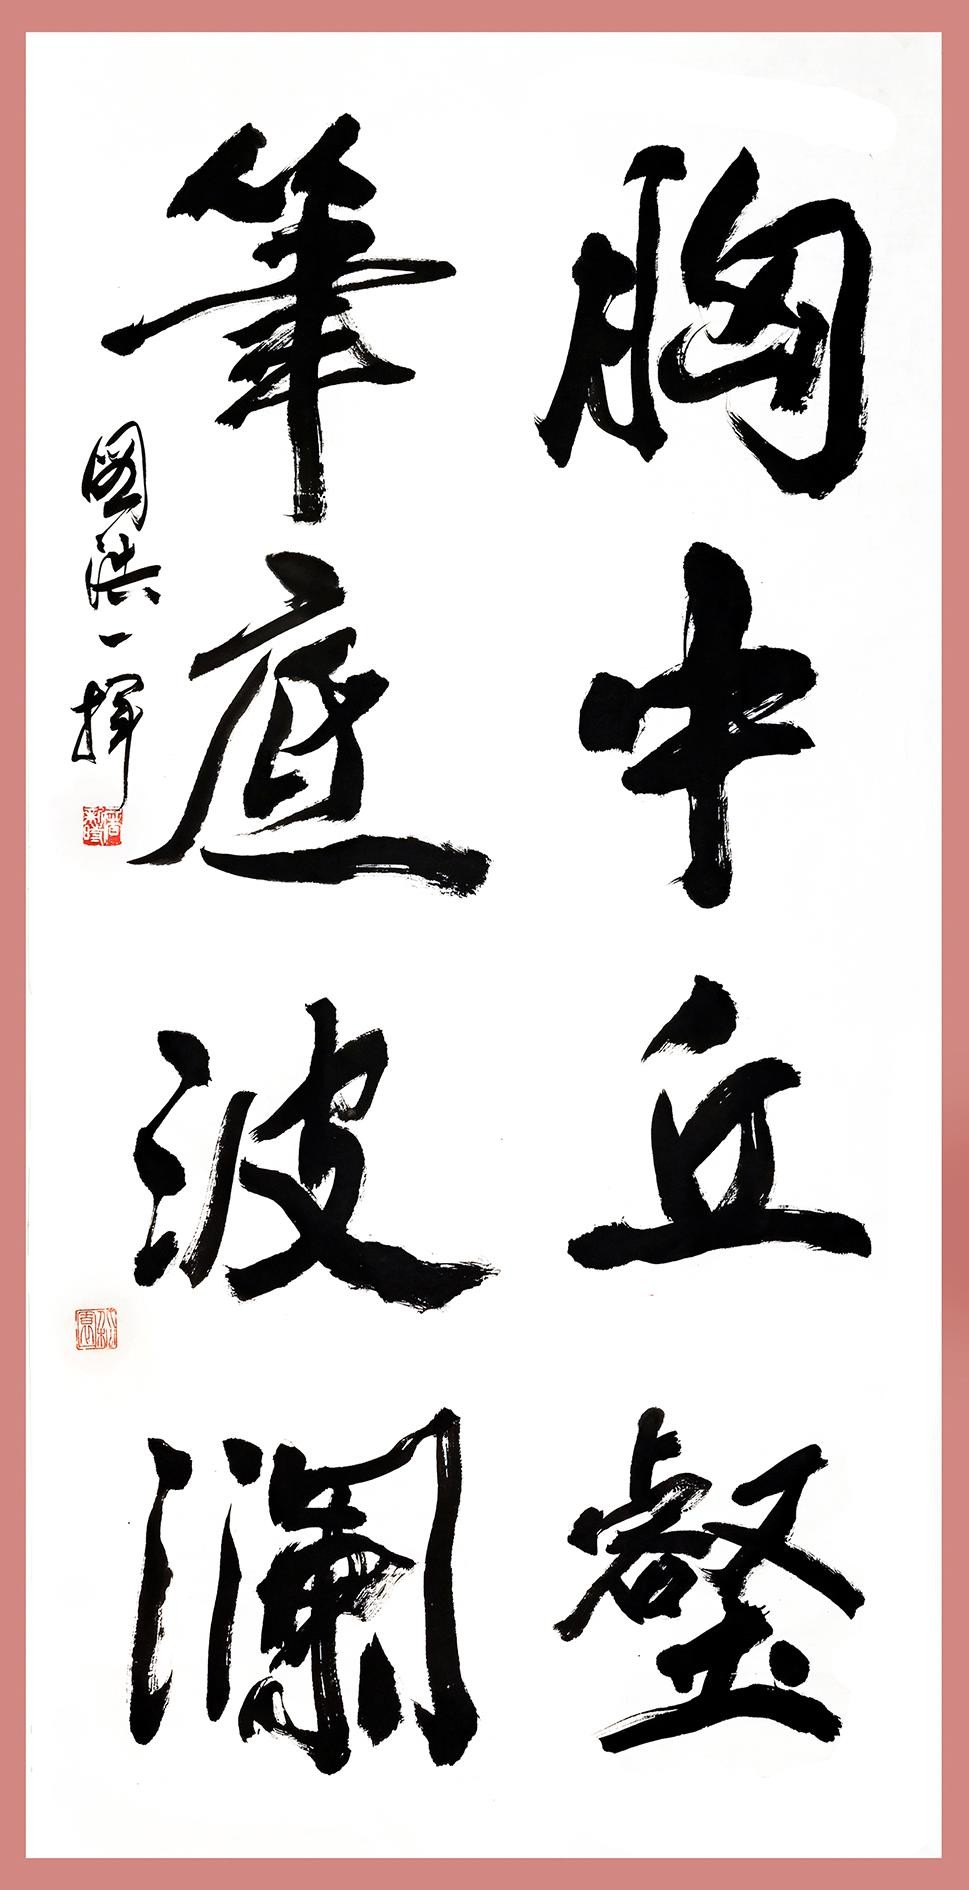 胸中丘壑
筆底波瀾
國洪一揮